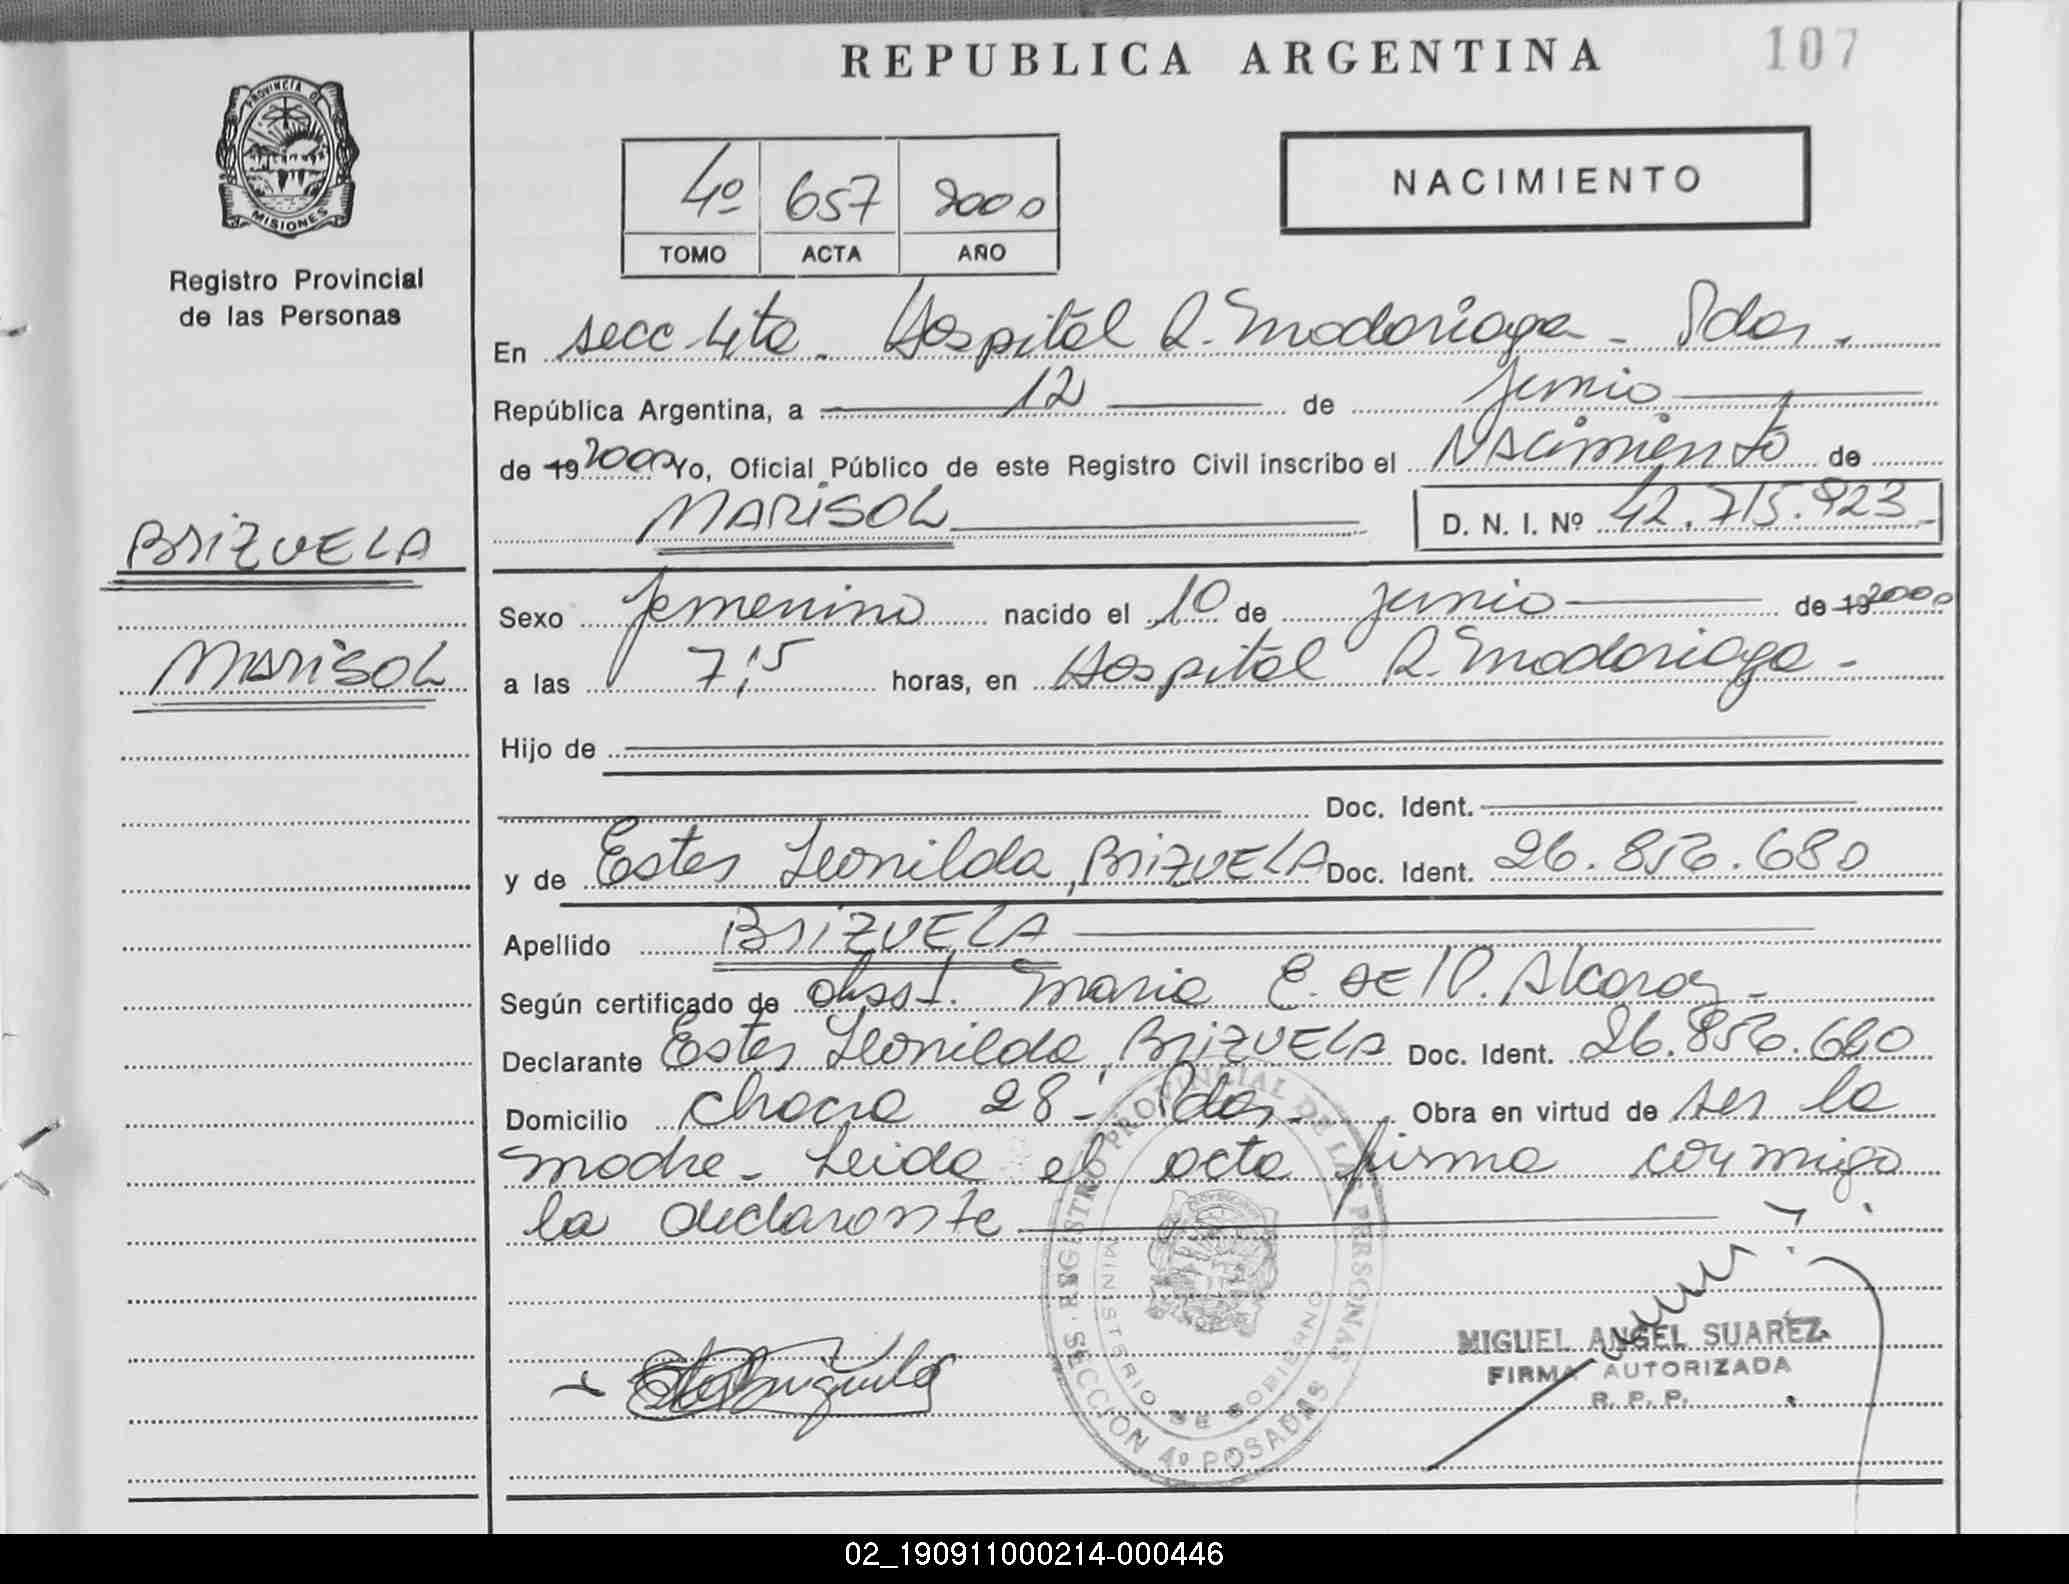 REPUBLICA ARGENTINA
107
PROVINCIA DE
MISIONES
Registro Provincial
de las Personas
4º 657 2000
TOMO ACTA AÑO
NACIMIENTO
En secc 4ta. Hospital R. Madariaga - Pdas.
República Argentina, a 12 de junio
de 19 2000 Yo, Oficial Público de este Registro Civil inscribo el Nacimiento de
MARISOL D. N. I. Nº 42.715.923
BRIZUELA
MARISOL
Sexo femenino nacido el 10 de junio de 19 2000
a las 7,15 horas, en Hospital R. Madariaga -
Hijo de
Doc. Ident.
y de Ester Leonilda BRIZUELA Doc. Ident. 26.856.680
Apellido BRIZUELA
Según certificado de obst. Maria E. DEL P. Alcaraz -
Declarante Ester Leonilda BRIZUELA Doc. Ident. 26.856.680
Domicilio chacra 28 - Pdas. Obra en virtud de ser la
madre - Leida el acta firma conmigo
la declarante
REGISTRO PROVINCIAL DE LAS PERSONAS
MINISTERIO DE GOBIERNO
SECCION 4º POSADAS
MIGUEL ANGEL SUAREZ
FIRMA AUTORIZADA
R. P. P.
02_190911000214-000446